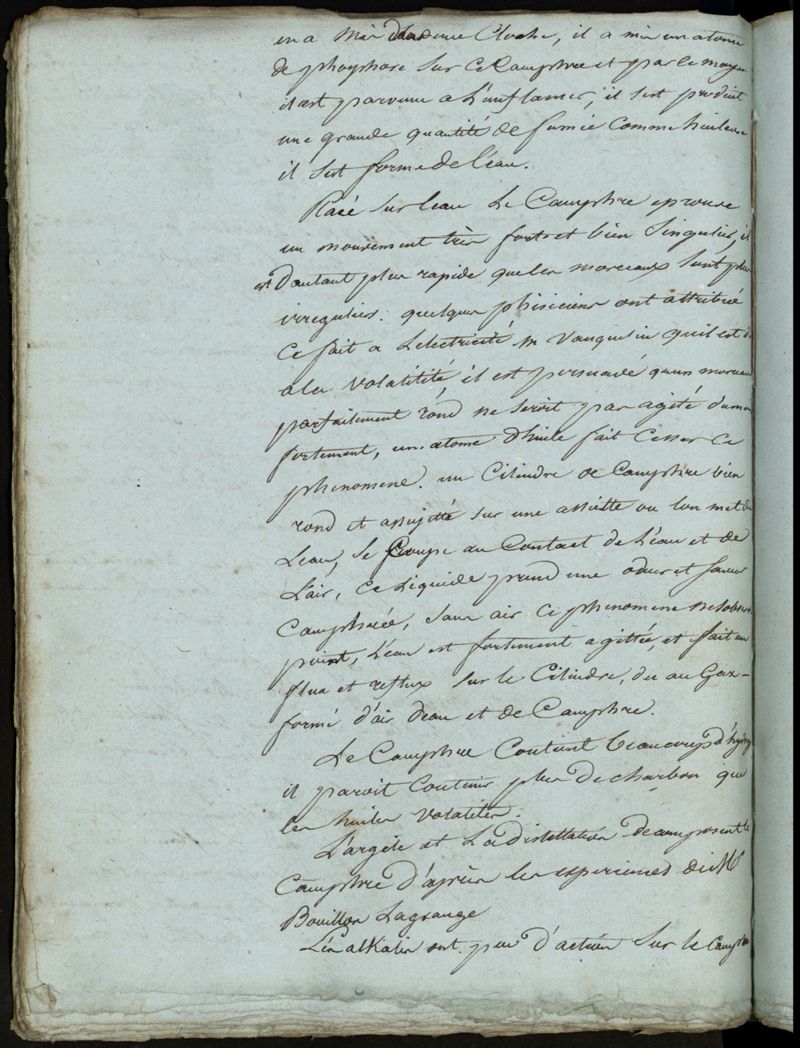 en a mis dans une Cloche, il a mis un atome
de phosphore sur ce Camphre et par ce moyen
il est parvenu a L'enflamer, il s'est produit
une grande quantité de fumée comme huileuse
il s'est formé de l'éau.
Placé sur leau Le Camphre eprouve
un mouvement très fort et bien singulier, il
est D'autant plus rapide que les morceaux sont plus
irreguliers. quelques phisiciens ont attribué
Ce fait a Lelectricité M Vauquelin qu'il est du
a la volatilité, il est persuadé qu'un morceau
parfaitement rond ne seroit pas agité
fortement, un atome d'huile fait cesser ce
phenomene. un Cilindre de Camphre bien
rond et assujetté sur une assiette ou lon met de
Leau, se Coupe au Contact de L'éau et de
L'air, ce Liquide prend une odeur et saveur
Camphrée, sans air ce phenomene ne
point, L'éau est fortement agittée, et fait un
flux et reflux sur le Cilindre, du au Gaz
formé d'air d'eau et de Camphre.
Le Camphre Contient beaucoup d'hydrog
il paroit Contenir plus de charbon que
les huiles volatiles.
L'argile et La distillation decomposent le
Camphre d'après les experiences de Mr
Bouillon Lagrange
Les alkalis ont peu d'action sur le Camphre